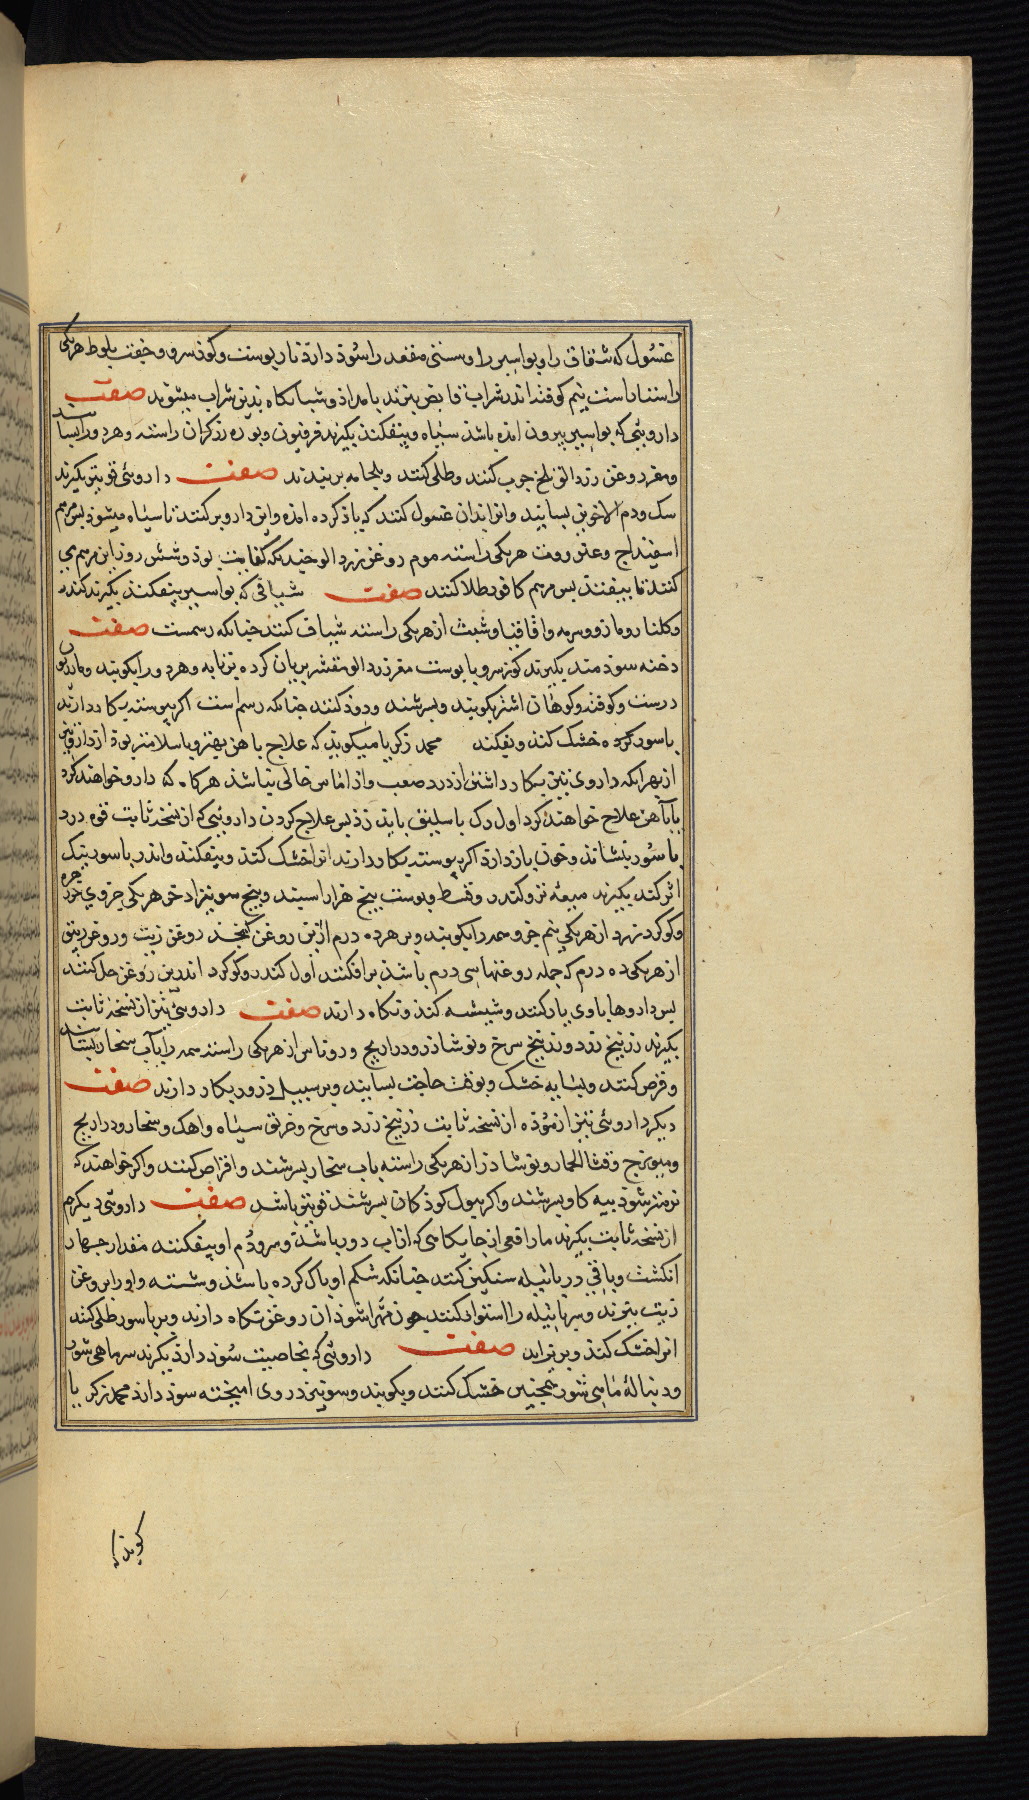 غسول که شقاق را و بواسیر را و سستی مقعد را سود دارد نار پوست و کوز سرو و خفت بلوط هر یکی
راستا راست نیم کوفته اندر شراب قابض بپزند بامداد و شبانکاه بدین شراب میشوید صفت
داروئی که بواسیر بیرون امده باشد سیاه و بیفکند بکیرند فرفیون و بوره زرکران راسته و هر دو را بسایند
و مغز روغن زردالو تلخ چرب کنند و طلی کنند و بلجامه بربندند صفت داروئی قویتر بکیرند
سک و دم الاخوین بسایند و انرا بدان غسول کنند که یاذ کرده امد و این دارو برکنند تا سیاه میشود پس مرهم
اسفیداج و عنزروت هر یکی راسته موم روغن زردالو چندانکه کفایت بود و شش روز این مرهم می
کنند تا بیفتد پس مرهم کافور طلا کنند صفت شیافی که بواسیر بیفکند بکیرند کندر
و کلنار و مازو و سرمه و اقاقیا و شبث از هر یکی راسته شیاف کنند چنانکه رسمست صفت
دخنه سودمند بکیرند کوز سرو با پوست مغز زردالو مقشر بریان کرده بر تابه و هر دو را بکویند و مازریون
درست و کوفته و کوهان اشتر بکویند و بسرشند و دود کنند چنانکه رسم است اکر پیوسته بکار دارند
باسور کرده خشک کند و بفکند محمد زکریا میکوید که علاج باهن بهتر و باسلامتر بود از داروی تیز
از بهر انکه داروی تیز بکار داشتن از درد صعب و از اماس خالی نباشد هر کاه که دارو خواهند کرد
یا باهن علاج خواهند کرد اول رک باسلیق باید زذ پس علاج کردن داروئی که از نسخه ثابت قره درد
باسور بنشاند و خون بازدارد اکر پیوسته بکار دارند انرا خشک کند و بیفکند و اندر باسور نیک
اثر کند بکیرند میعه تر و کندر و قسط و پوست بیخ هزار اسپند و بیخ سوسن ازاد خو هر یکی جزوی خرد
و کوکرد زرد از هر یکی نیم جزو همه را بکویند و بر هر ده درم ازین روغن کنجد روغن زیت و روغن زیبق
از هر یکی ده درم که جمله روغنها سی درم باشد برافکنند اول کندر و کوکرد اندرین روغن حل کنند
پس داروها با وی یار کنند و شیشه کند و نکاه دارند صفت داروئی تیز از نسخه ثابت
بکیرند زرنیخ زرد و زرنیخ سرخ و نوشاذر و دراریح و روناس از هر یکی راسته همه را بآب سنجار بسایند
و قرص کنند و بسایه خشک و بوقت حاجت بسایند و بر سبیل ذرور بکار دارند صفت
دیکر داروئی تیز ازموده از نسخه ثابت زرنیخ زرد و سرخ و خربق سیاه و اهک و سنجار و دراریح
و میویزج و قثالحمار و نوشاذر از هر یکی راسته باب سنجار بسرشند و اقراص کنند و اکر خواهند که
نرمتر شود بپیه کاو بسرشند و اکر ببول کودکان بسرشند قویتر باشد صفت داروئی دیکرم
از نسخه ثابت بکیرند مار افعی از جایکاهی که از اب دور باشد و سر و دم او بیفکنند مقدار چهار
انکشت و باقی در پاتیله سنکین کنند چنانکه شکم او پاک کرده باشند و شسته و او را بروغن
زیت بپزند و سر پاتیله را استوار کنند چون مهرا شود ان روغن نکاه دارند و بر باسور طلی کنند
انرا خشک کند و بریزاند صفت داروئی که بخاصیت سود دارد بکیرند سر ماهی شور
و دنباله ماهی شور همچنین خشک کنند و بکویند و سونیز در وی امیخته سود دارد محمد زکریا
کوید که